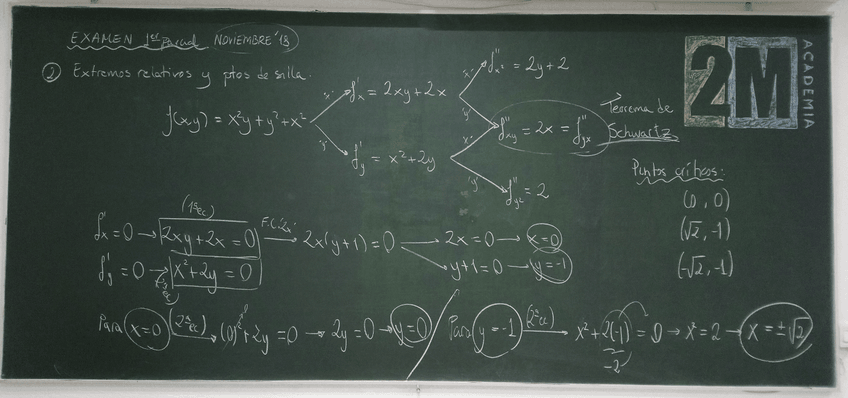 EXAMEN 1er Parcial NOVIEMBRE '13
2M ACADEMIA
② Extremos relativos y ptos de silla.
f(x,y) = x²y + y² + x²
'x' f'x = 2xy + 2x
'y' f'y = x² + 2y
'x' f''x² = 2y + 2
'y' 'x' f''xy = 2x = f''yx
'y' f''y² = 2
Teorema de
Schwartz
Puntos críticos:
(0, 0)
(√2, -1)
(-√2, -1)
(1ª ec)
f'x = 0 → 2xy + 2x = 0 F.C. '2x' → 2x(y + 1) = 0 → 2x = 0 → x = 0
f'y = 0 → x² + 2y = 0 → y + 1 = 0 → y = -1
(2ª ec)
Para x = 0 (2ª ec) → (0)² + 2y = 0 → 2y = 0 → y = 0
Para y = -1 (2ª ec) → x² + 2(-1) = 0 → x² = 2 → x = ±√2
-2